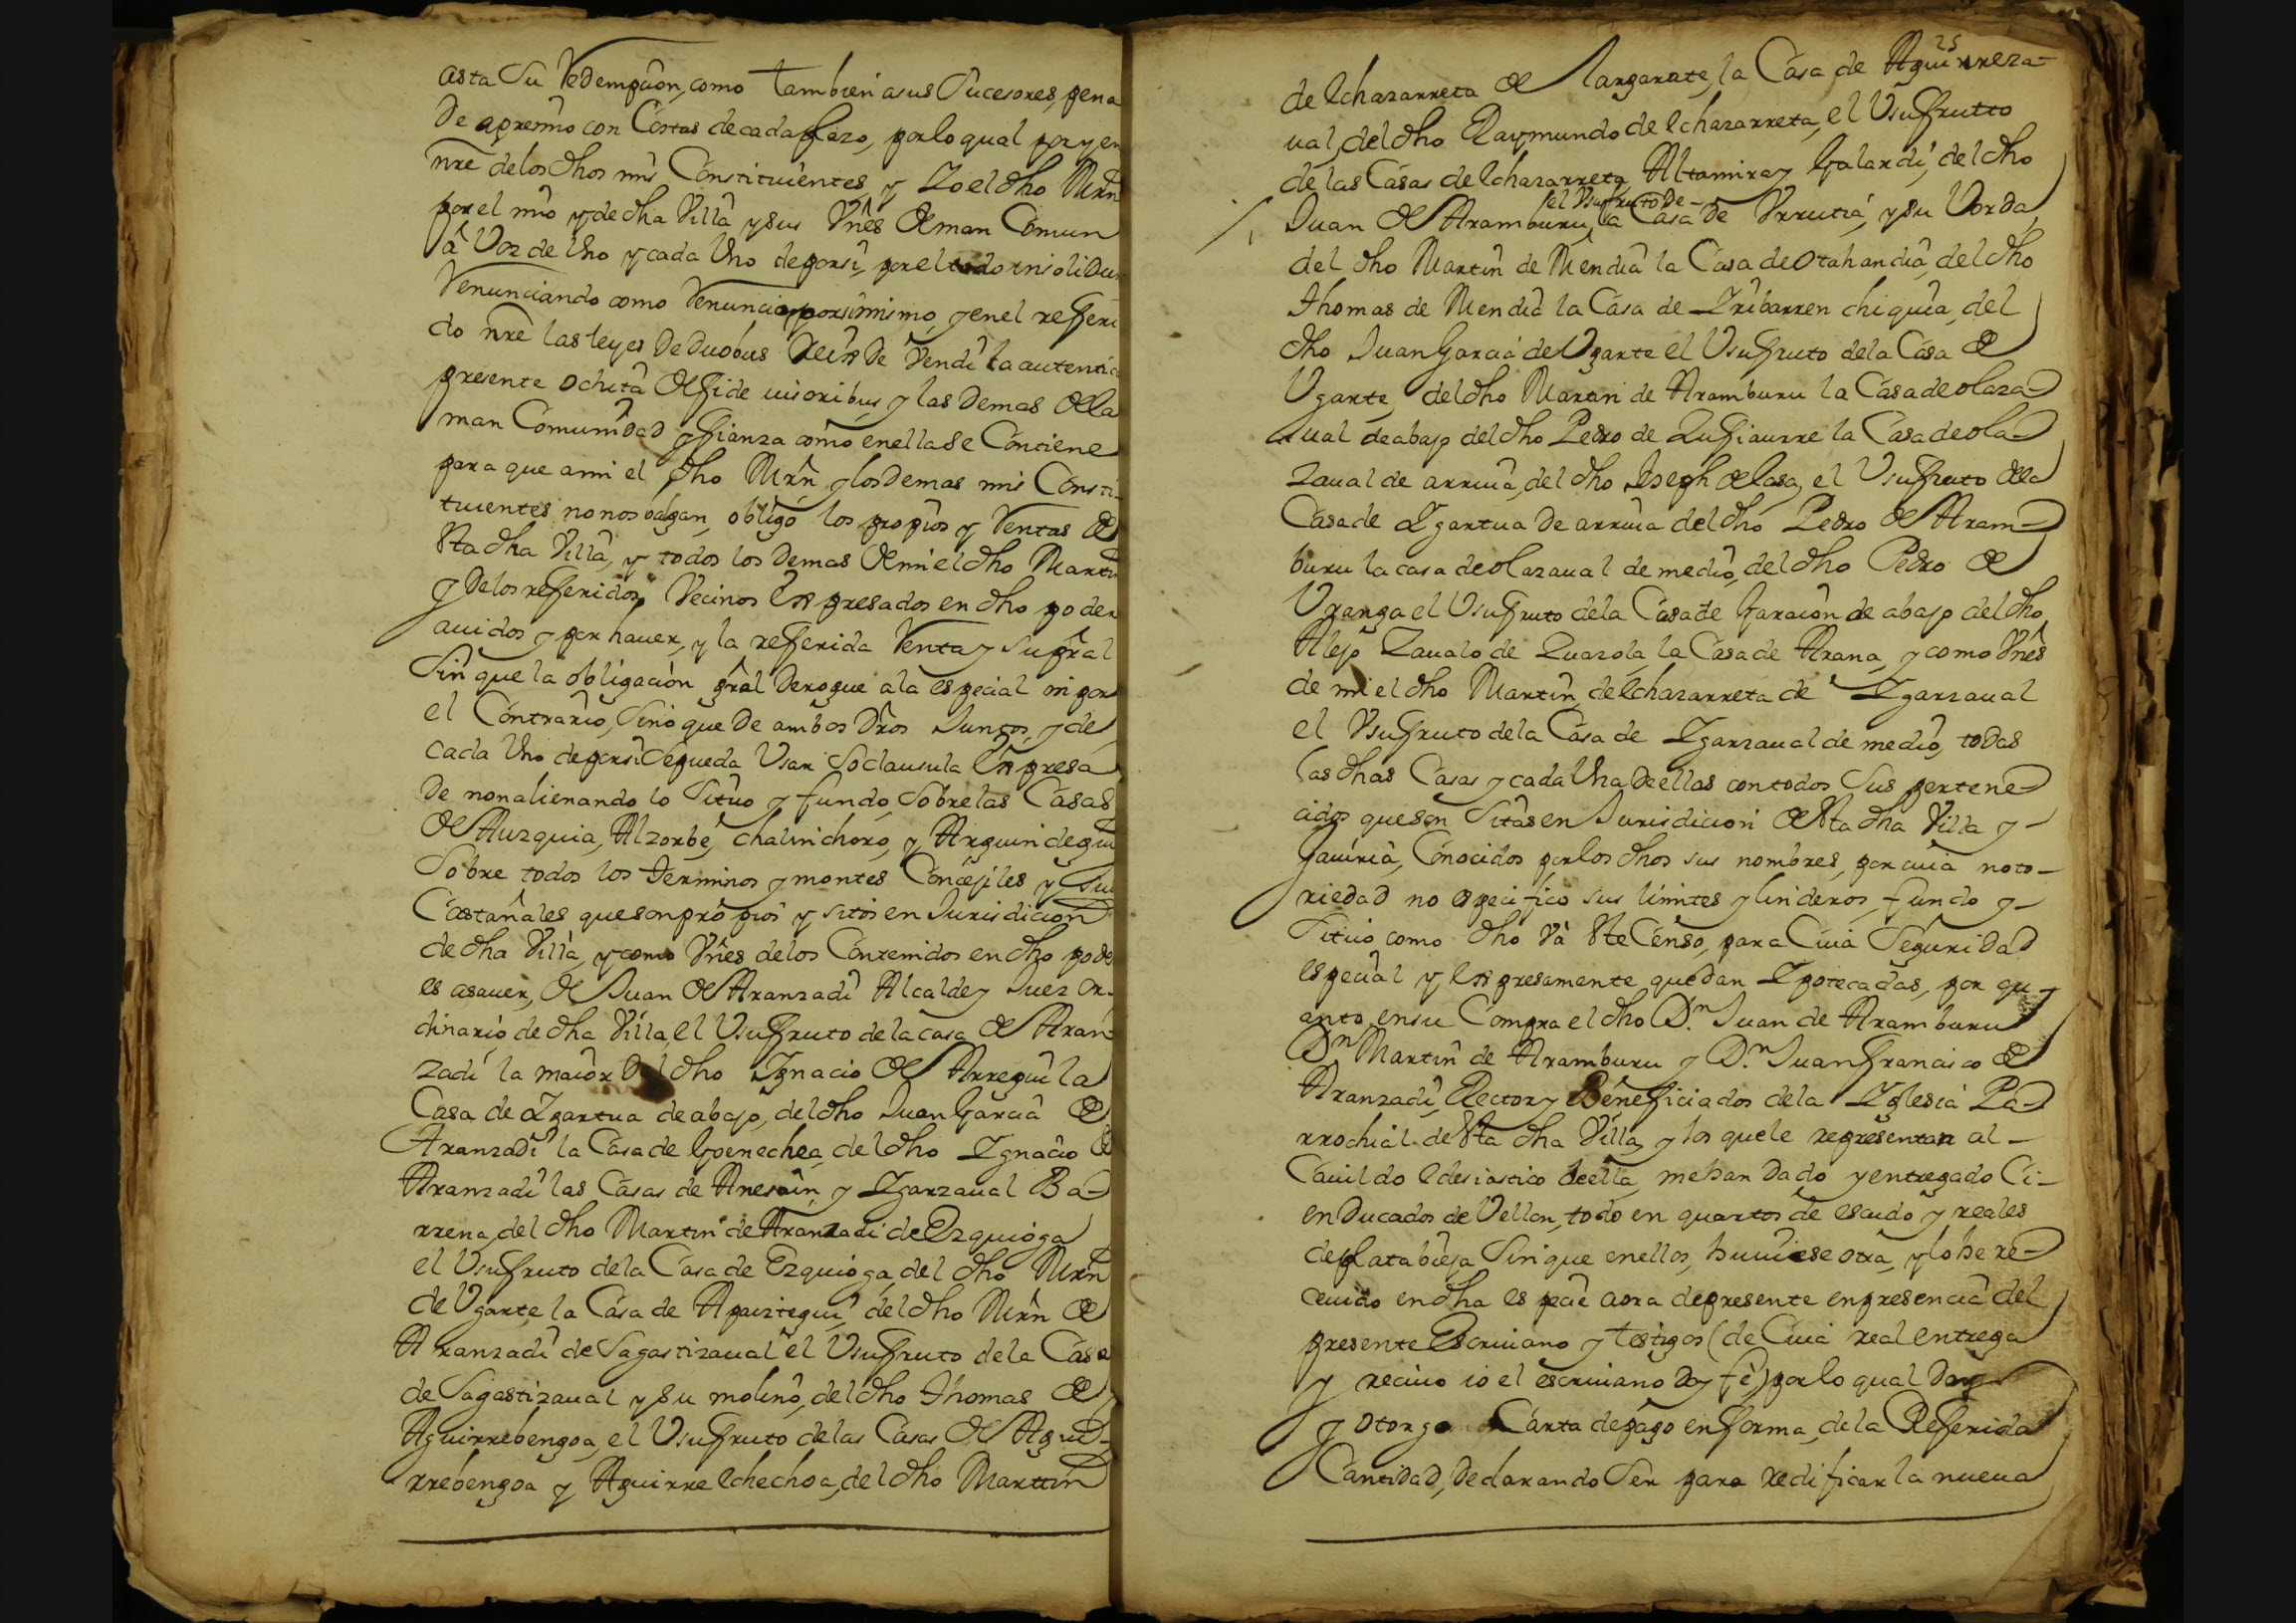 asta Su Redempcion, como tambien asus Sucesores, pena
De apremio con Costas de cada plazo, porlo qual por y en
nre delos dhos mis Constituientes, y Yo el dho Mrn
por el mio y de dha Villa y sus Vnes de man Comun
â Voz de Uno y cada Uno deporsi, por el todo insolidun
Renunciando como Renuncio por simismo, y en el referi
do nre las leyes De duobus Reis De Vendi la autentica
presente ochita de fide iusoribus y las Demas dela
man Comunidad y fianza como enellas se Contiene
para que ami el dho Mrn y los Demas mis Consti-
tuientes no nos balgan, obligo los propios y Rentas de
Sta dha Villa, y todos los Demas de mi el dho Martin
y Delos referidos Vecinos Expresados en dho poder
auidos y por hauer, y la referida Renta y Su pral
Sin que la obligacion gral Derogue ala especial ni por
el Contrario, Sino que De ambos Dros Juntos, y de
cada Uno deporsi Se pueda Usar So clausula Expresa
De non alienando lo Situo y fundo, Sobre las Casas
de Auzquia, Alzorbe, chalinchoro, y Arguindegui
Sobre todos los terminos y montes Concejiles y sus
Castañales que son propios y sitos en Jurisdicion
de dha Villa, y como Vnes delos Contenidos en dho pode
es asauer, de Juan de Aranzadi Alcalde y Juez or-
dinario de dha Villa, el Usufruto de la casa de Aran-
zadi la maior Del dho Ignacio de Arregui la
Casa de Ygartua de abajo, del dho Juan Garcia de
Aranzadi la Casa de Goenechea, del dho Ignacio de
Aranzadi las Casas de Anesain, y Igarzaual Ba-
rrena, del dho Martin de Aranzadi de Ezquioga
el Usufruto dela Casa de Ezquioga, del dho Mrn
de Ugarte la Casa de Apaiztegui, del dho Mrn de
Aranzadi de Sagastizaual el Usufruto dela Casa
de Sagastizaual y su molino, del dho Thomas de
Aguirrebengoa, el Usufruto delas Casas de Agui-
rrebengoa y Aguirre Echechoa, del dho Marttin
25
de Echazarreta de largarate, la Casa de Aguirreza-
ual, del dho Raymundo de Echazarreta, el Usufrutto
de las Casas de Echazarreta, Altamira y Galardi, del dho
el Usufruto De
Juan de Aramburu, la Casa de Urrutia, y su Borda,
del dho Martin de Mendia la Casa de Otahandia, del dho
Thomas de Mendia la Casa de Iribarren chiquia, del
dho Juan Garcia de Ugarte el Usufruto dela Casa de
Ugarte, del dho Martin de Aramburu la Casa de olaza-
ual de abajo del dho Pedro de Zufiaurre la Casa de ola-
zaual de arriua, del dho Joseph de lasa, el Usufruto dela
Casa de Ygartua de arriua del dho Pedro de Aram-
buru la casa de olazaual de medio, del dho Pedro de
Uranga el Usufruto dela Casa de Garacion de abajo del dho
Alejo Zaualo de Zuazola, la Casa de Arana, y como Vnes
de mi el dho Martin de Echazarreta de Igarzaual
el Usufruto dela Casa de Igarzaual de medio, todas
las dhas Casas y cada Una de ellas con todos Sus pertene-
cidos que son Sitas en Jurisdicion de Sta dha Villa y
Gauiria, Conocidos por los dhos sus nombres, por cuia noto-
riedad no especifico sus limites y linderos, fundo y
Situo como dho Va Ste Censo, para Cuia Seguridad
especial y Expresamente quedan Ipotecadas, por qu-
anto ensu Compra el dho Dn. Juan de Aramburu
Dn Martin de Aramburu y Dn. Juan Francisco de
Aranzadi, Rector y Beneficiados dela Iglesia Pa-
rrochial de Sta dha Villa, y los quele representan al
Cauildo Eclesiastico de ella, me han dado y entregado Ci-
en Ducados de Vellon, todo en quartos de escudo y reales
de plata bieja Sin que enellos, huuiese otra, y lo he re-
ceuido en dha especie aora depresente en presencia del
presente Escriuano y testigos (de Cuia real entrega
y reciuo io el escriuano Doy fe) por lo qual Doy
y otorgo Carta de pago en forma, de la Referida
Cantidad, Declarando Ser para redificar la nueua